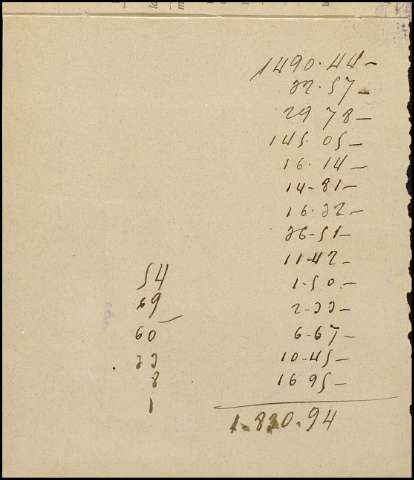 1490.44-
32.57-
29 78-
145.05-
16.14-
14-81-
16.32-
36-51-
11-42-
54
1-50.-
69
2-33-
60
6-67-
33
10-45-
8
16 95-
1
1.830.94